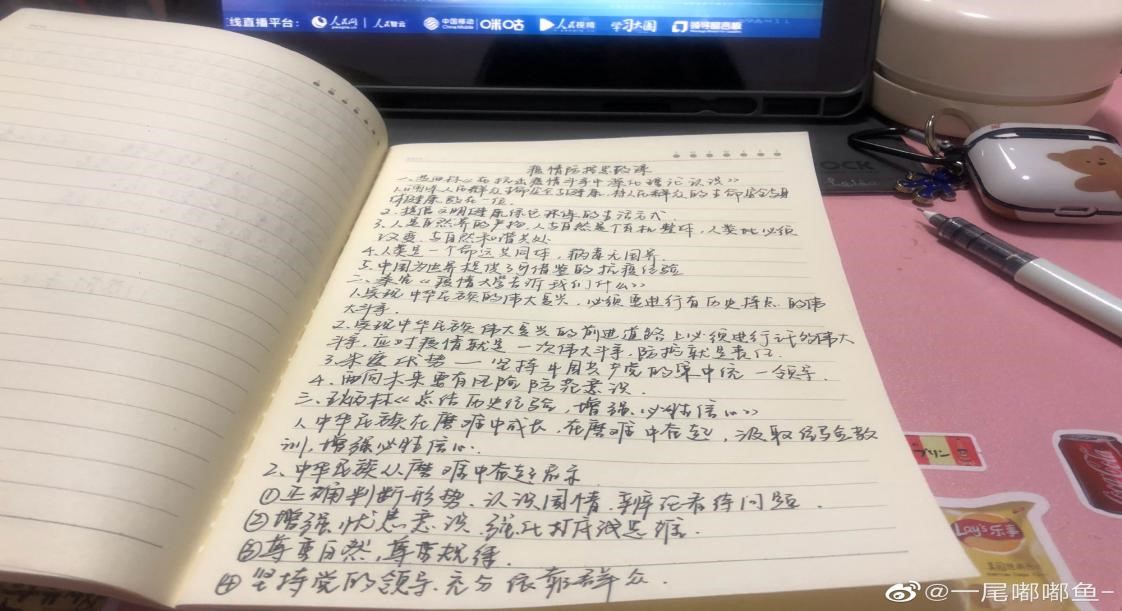 线直播平台: 人民网 人民智云 中国移动 China Mobile 咪咕 人民视频 学习大国 领导留言板
疫情防控思政课
一、《在抗击疫情斗争中深化理论认识》
1.人民群众生命安全与健康,将人民群众的生命安全与身
体健康放在第一位.
2.提倡文明健康绿色环保的生活方式.
3.人是自然界的产物,人与自然是个有机整体,人类也必须
改变,与自然和谐共处
4.人类是一个命运共同体,病毒无国界.
5.中国为世界提供了可借鉴的抗疫经验
二、秦宣《疫情大学告诉我们什么》
1.实现中华民族的伟大复兴,必须要进行有历史特点的伟
大斗争.
2.实现中华民族伟大复兴的前进道路上必须进行许多伟大
斗争,应对疫情就是一次伟大斗争,防控就是责任.
3.米疫状势—坚持中国共产党的集中统一领导.
4.面向未来要有风险防范意识.
三、《总结历史经验,增强必胜信心》
1.中华民族在磨难中成长,在磨难中奋起,汲取经验教
训,增强必胜信心.
2、中华民族从磨难中奋起启示
①正确判断形势、认识国情、辩论看待问题.
②增强忧患意识、强化打库线思维.
③尊重自然,尊重规律.
④坚持党的领导、充分依靠群众.
OCK
プリン
Coca-Cola
Lay's乐事
@一尾嘟嘟鱼-